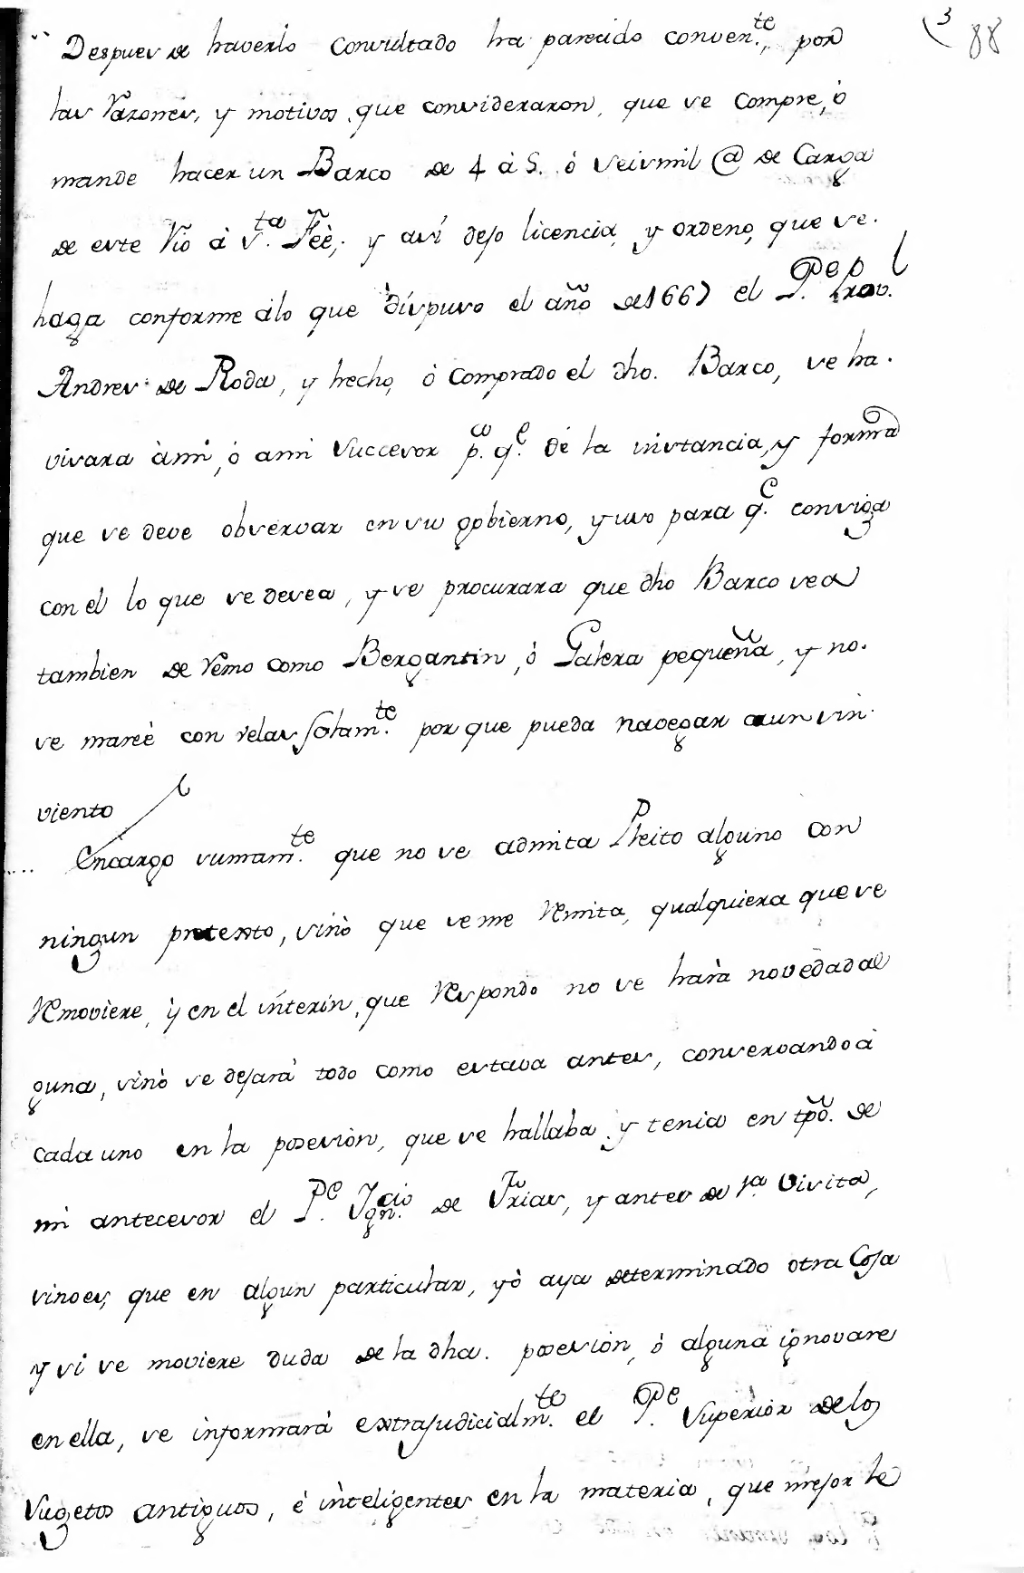 3 88
Despues de haverlo consultado ha parecido conven.te, por
las razones, y motivos que consideraron, que se compre, ó
mande hacer un Barco de 4 á 5. ó seis mil @ de Carga
de este Rio á S.ta Feè, y así dejo licencia, y ordeno, que se
haga conforme álo que dispuso el año de 1667 el P.e Prov.l
Andres de Roda, y hecho, ó comprado el dho. Barco, se ha-
visara à mi, ó ami succesor p.a q.e dé la instancia, y forma
que se deve observar en su gobierno, y uso para q.e consiga
con el lo que se desea, y se procurara que dho Barco sea
tambien de remo como Bergantin, ó Galera pequeña, y no
se mareè con velas solam.te por que pueda navegar aun sin
viento
Encargo sumam.te que no se admita Pleito alguno con
ningun pretexto, sinò que se me remita, qualquiera que se
removiere, y en el ínterin, que respondo no se harà novedad al
guna, sinò se dejará todo como estava antes, conservando á
cada uno en la posesiòn, que se hallaba y tenia en tpõ. de
mi antecesor el P.e Ygn.cio de Frias, y antes de 1.a Visita,
sino es, que en algun particular, yò aya determinado otra Cosa
y si se moviere duda de la dha. posesiòn, ó alguna ignovare
en ella, se informará extrajudicialm.te el P.e Superiòr de los
Sugetos antiguos, è inteligentes en la materia, que mejor le